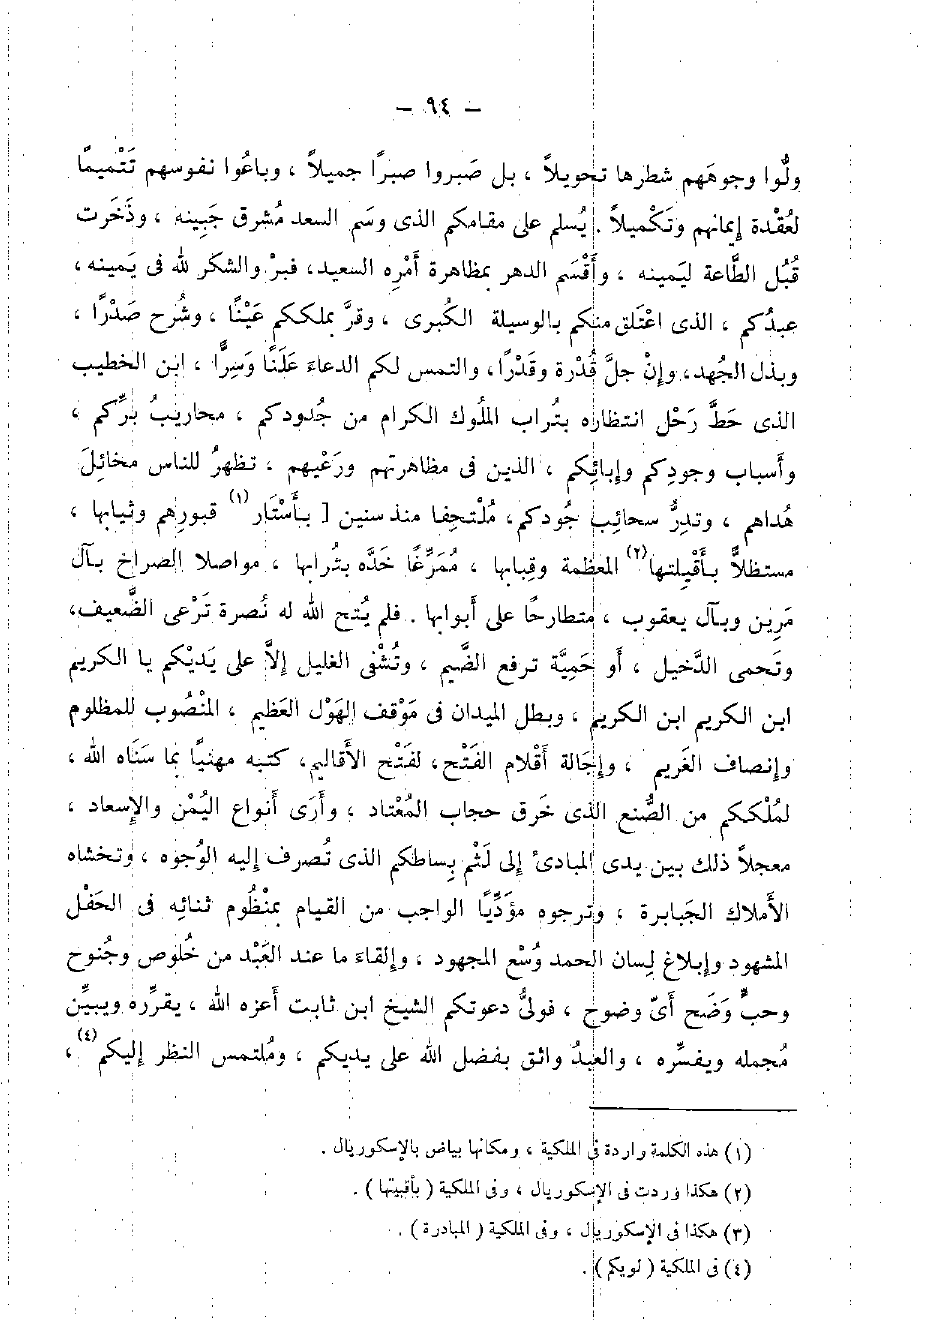 — ٩٤ —
ولُّوا وجوهَهم شطرها تحويلاً ، بل صَبروا صبرًا جميلاً ، وباعُوا نفوسهم تَتْميمًا
لعُقْدة إيمانهم وتَكْميلاً . يُسلم على مقامكم الذى وسَم السعد مُشرق جَبينه ، وذَخَرت
قُبُل الطَّاعة ليَمينه ، وأَقْسَم الدهر بمظاهرة أمْره السعيد، فبرْ والشكر لله فى يَمينه،
عبدُكم ، الذى اعْتَلق منكم بالوسيلة الكُبرى ، وقرَّ بملككم عَيْنًا ، وشُرح صَدْرًا ،
وبذل الجُهد، وإنْ جلَّ قُدْرة وقَدْرًا، والتمس لكم الدعاء عَلَنًا وَسِرًّا ، ابن الخطيب
الذى حَطَّ رَحْل انتظاره بتُراب الملُوك الكرام من جُدودكم ، محاريبُ برِّكم ،
وأسباب وجودِكم وإبائِكم ، الذين فى مظاهرتهم ورَعْيهم ، تظهرُ للناس مخائلَ
هُداهم ، وتدِرُّ سحائب جُودكم، مُلْتحِفا منذ سنين [ بأَسْتَار (١) قبورِهم وثيابها ،
مستظلاًّ بأَقْيِلتها (٢) المعظمة وقِبابها ، مُمَرِّغًا خَدَّه بتُرابها ، مواصلا الصراخ بآل
مَرِين وبآل يعقوب ، متطارحًا على أبوابها . فلم يُتح الله له نُصرة تَرْعى الضَّعيف،
وتَحمى الدَّخيل ، أو حَمِيَّة ترفع الضَّيم ، وتُشْفى الغليل إلاَّ على يَديْكم يا الكريم
ابن الكريم ابن الكريم ، وبطل الميدان فى مَوْقف الهَوْل العَظيم ، المنْصُوب للمظلوم
وإنصاف الغَريم ، وإجالة أقْلام الفَتْح، لفَتْح الأقاليم، كتبه مهنيًّا بما سَنَاه الله ،
لمُلْككم من الصُّنع الذى خَرق حجاب المُعْتاد ، وأَرَى أنواع اليُمْن والإسعاد ،
معجلاً ذلك بين يدى المبادئ إلى لَثْم بِساطكم الذى تُصرف إليه الوُجوه ، وتخشاه
الأملاك الجَبابرة ، وترجوه مؤدِّيًا الواجب من القيام بمنْظُوم ثنائه فى الحَفْل
المشهود وإبلاغ لِسان الحمد وُسْع المجهود ، وإلقاء ما عند العَبْد من خُلوص وجُنوح
وحبٍّ وَضَح أىّ وضوح ، فولىُّ دعوتكم الشيخ ابن ثابت أعزه الله ، يقرِّره ويبيِّن
مُجمله ويفسِّره ، والعبدُ واثق بفضل الله على يديكم ، ومُلتمس النظر إليكم (٤) ،
(١) هذه الكلمة واردة فى الملكية ، ومكانها بياض بالإسكوريال .
(٢) هكذا وردت فى الإسكوريال ، وفى الملكية ( بأقبيتها ) .
(٣) هكذا فى الإسكوريال ، وفى الملكية ( المبادرة ) .
(٤) فى الملكية ( لويكم ) .